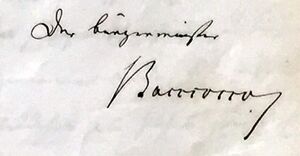 Der bürgermeister
Bacciocco